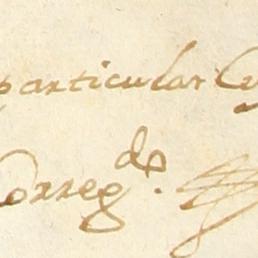 particular
Correg.do